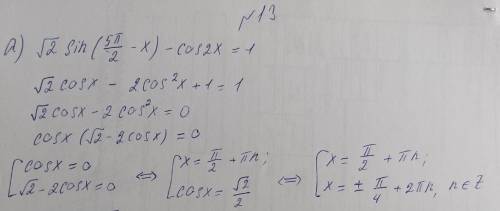 №13
а) √2 sin(5π/2 - x) - cos2x = 1
√2 cosx - 2cos²x + 1 = 1
√2 cosx - 2cos²x = 0
cosx (√2 - 2cosx) = 0
[cosx = 0 ⇔ [x = π/2 + πn; ⇔ [x = π/2 + πn;
√2 - 2cosx = 0 cosx = √2/2 x = ± π/4 + 2πn, n∈Z